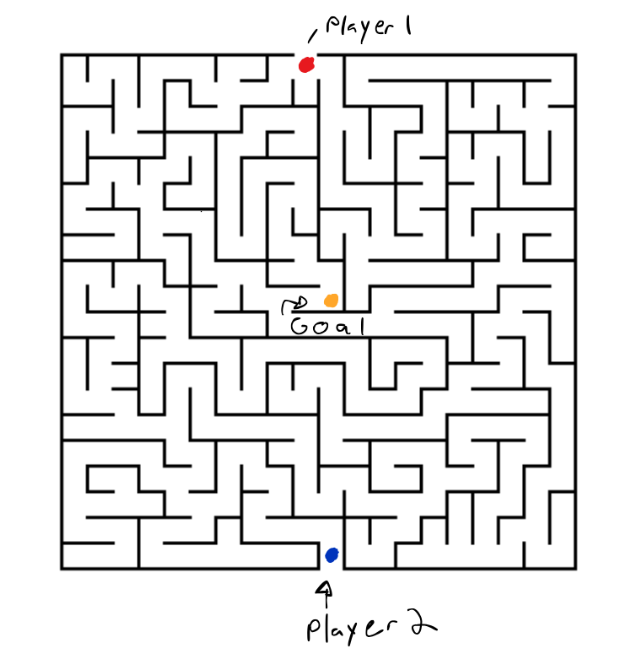 Player 1
Goal
Player 2